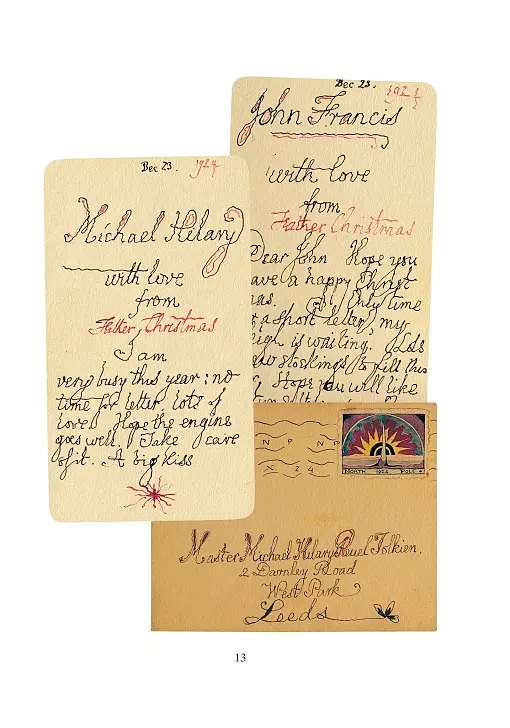 Dec 23. 1924
Michael Hilary
with love
from
Father Christmas
I am
very busy this year: no
time for letter. Lots of
love. Hope the engine
goes well. Take care
of it. A big kiss
Dec 23. 1924
John Francis
with love
from
Father Christmas
Dear John Hope you
ave a happy Christ
mas. Only time
a short letter, my
eigh is waiting. Lots
ew stockings to fill this
Hope you will like
NP NP
X 24
NORTH 1924 POLE
Master Michael Hilary Reuel Tolkien.
2 Darnley Road
West Park
Leeds
13